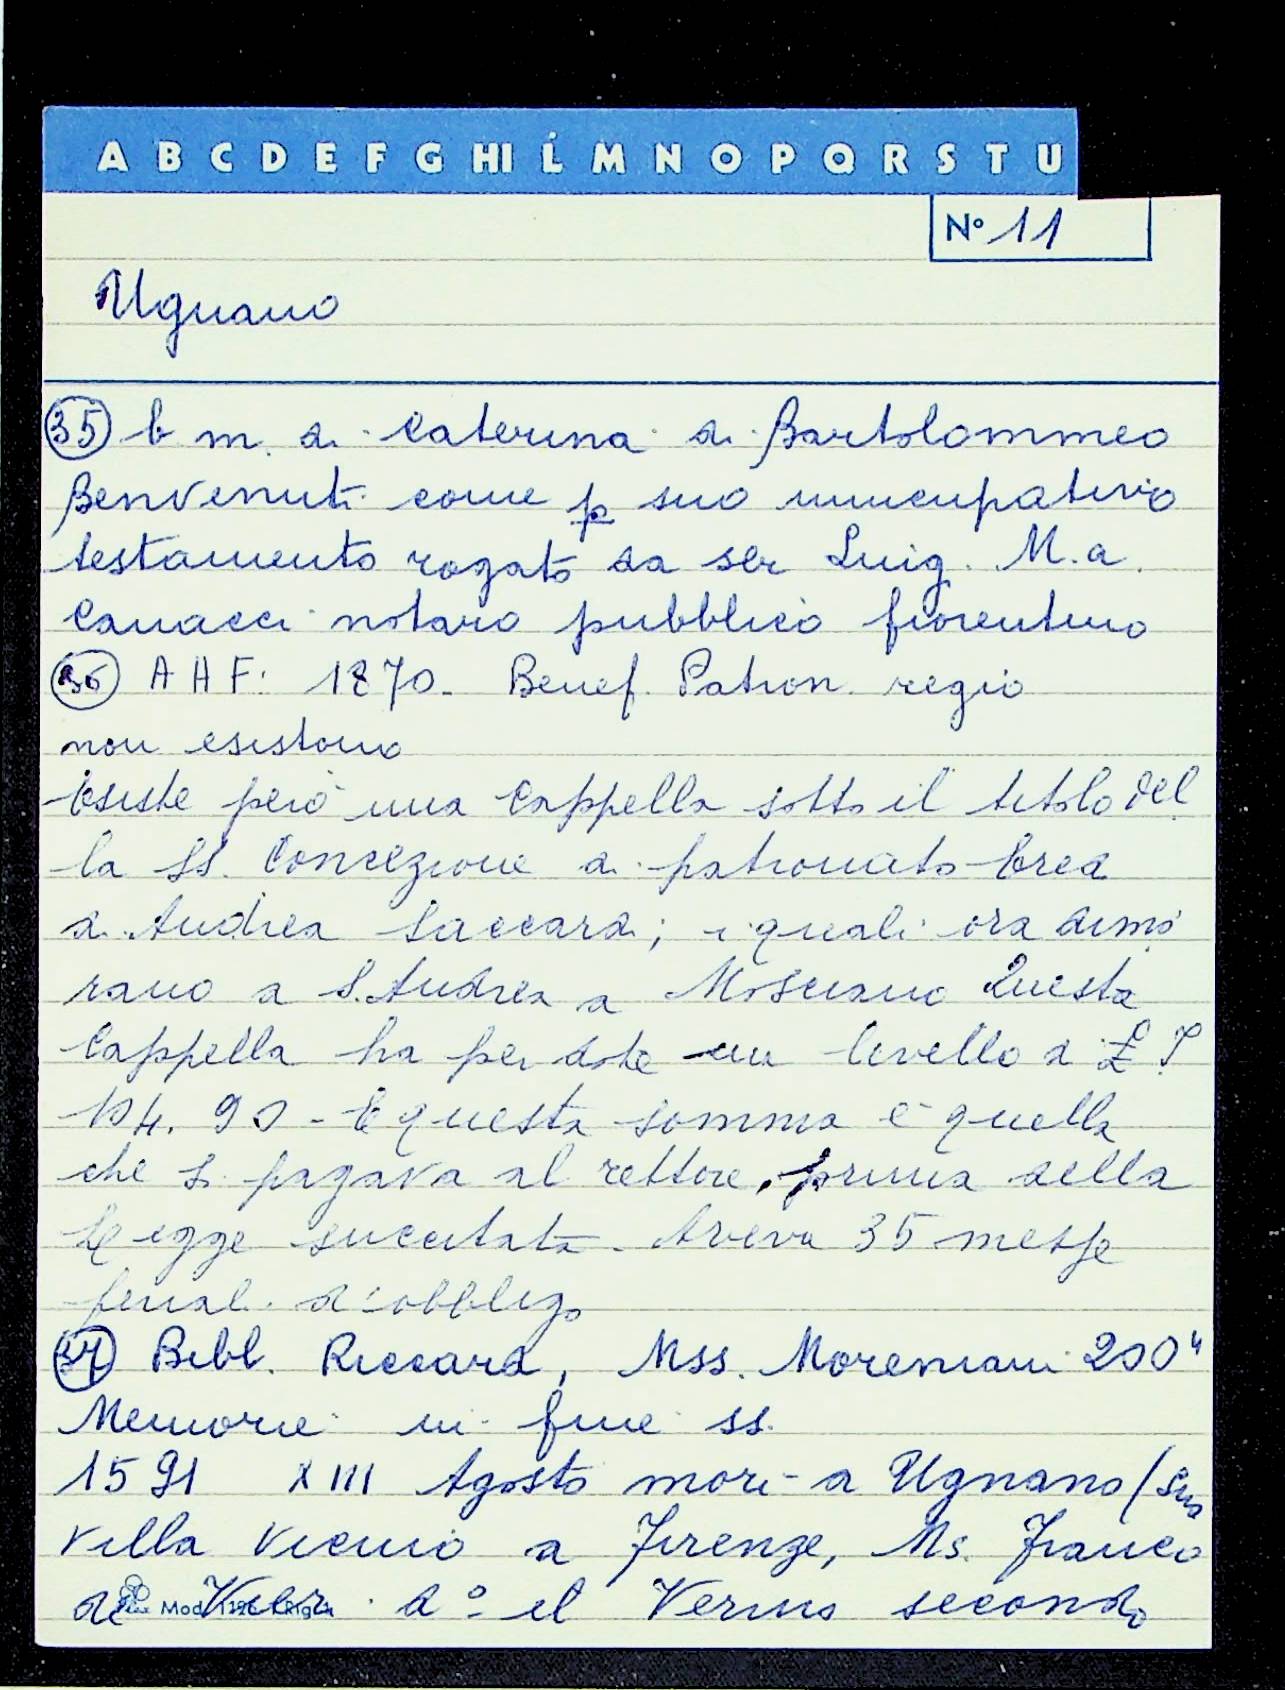 A B C D E F G HI L M N O P Q R S T U
N° 11
Ugnano
35 b m. di Caterina di Bartolommeo
Benvenuti come p suo nuncupativo
testamento rogato da ser Luig. M.a
Canacci notaro pubblico fiorentino
36 A A F. 1870. Benef. Patron. regio
non esistono
Esiste però una Cappella sotto il titolo del
la SS. Concezione di patronato Ered
di Andrea Saccardi; i quali ora dimo
rano a S. Andrea a Mosciano Questa
Cappella ha per dote un livello di £
104. 90 - E questa somma è quella
che si pagava al rettore, prima della
Legge succitata. Aveva 35 messe
feriali d'obbligo
37 Bibl. Riccard, Mss. Moreniani 200"
Memorie in fine ss.
1591 XIII Agosto morì a Ugnano (sua
villa vicino a Firenze, Ms. Franco
di d° il Verino secondo
Mod.